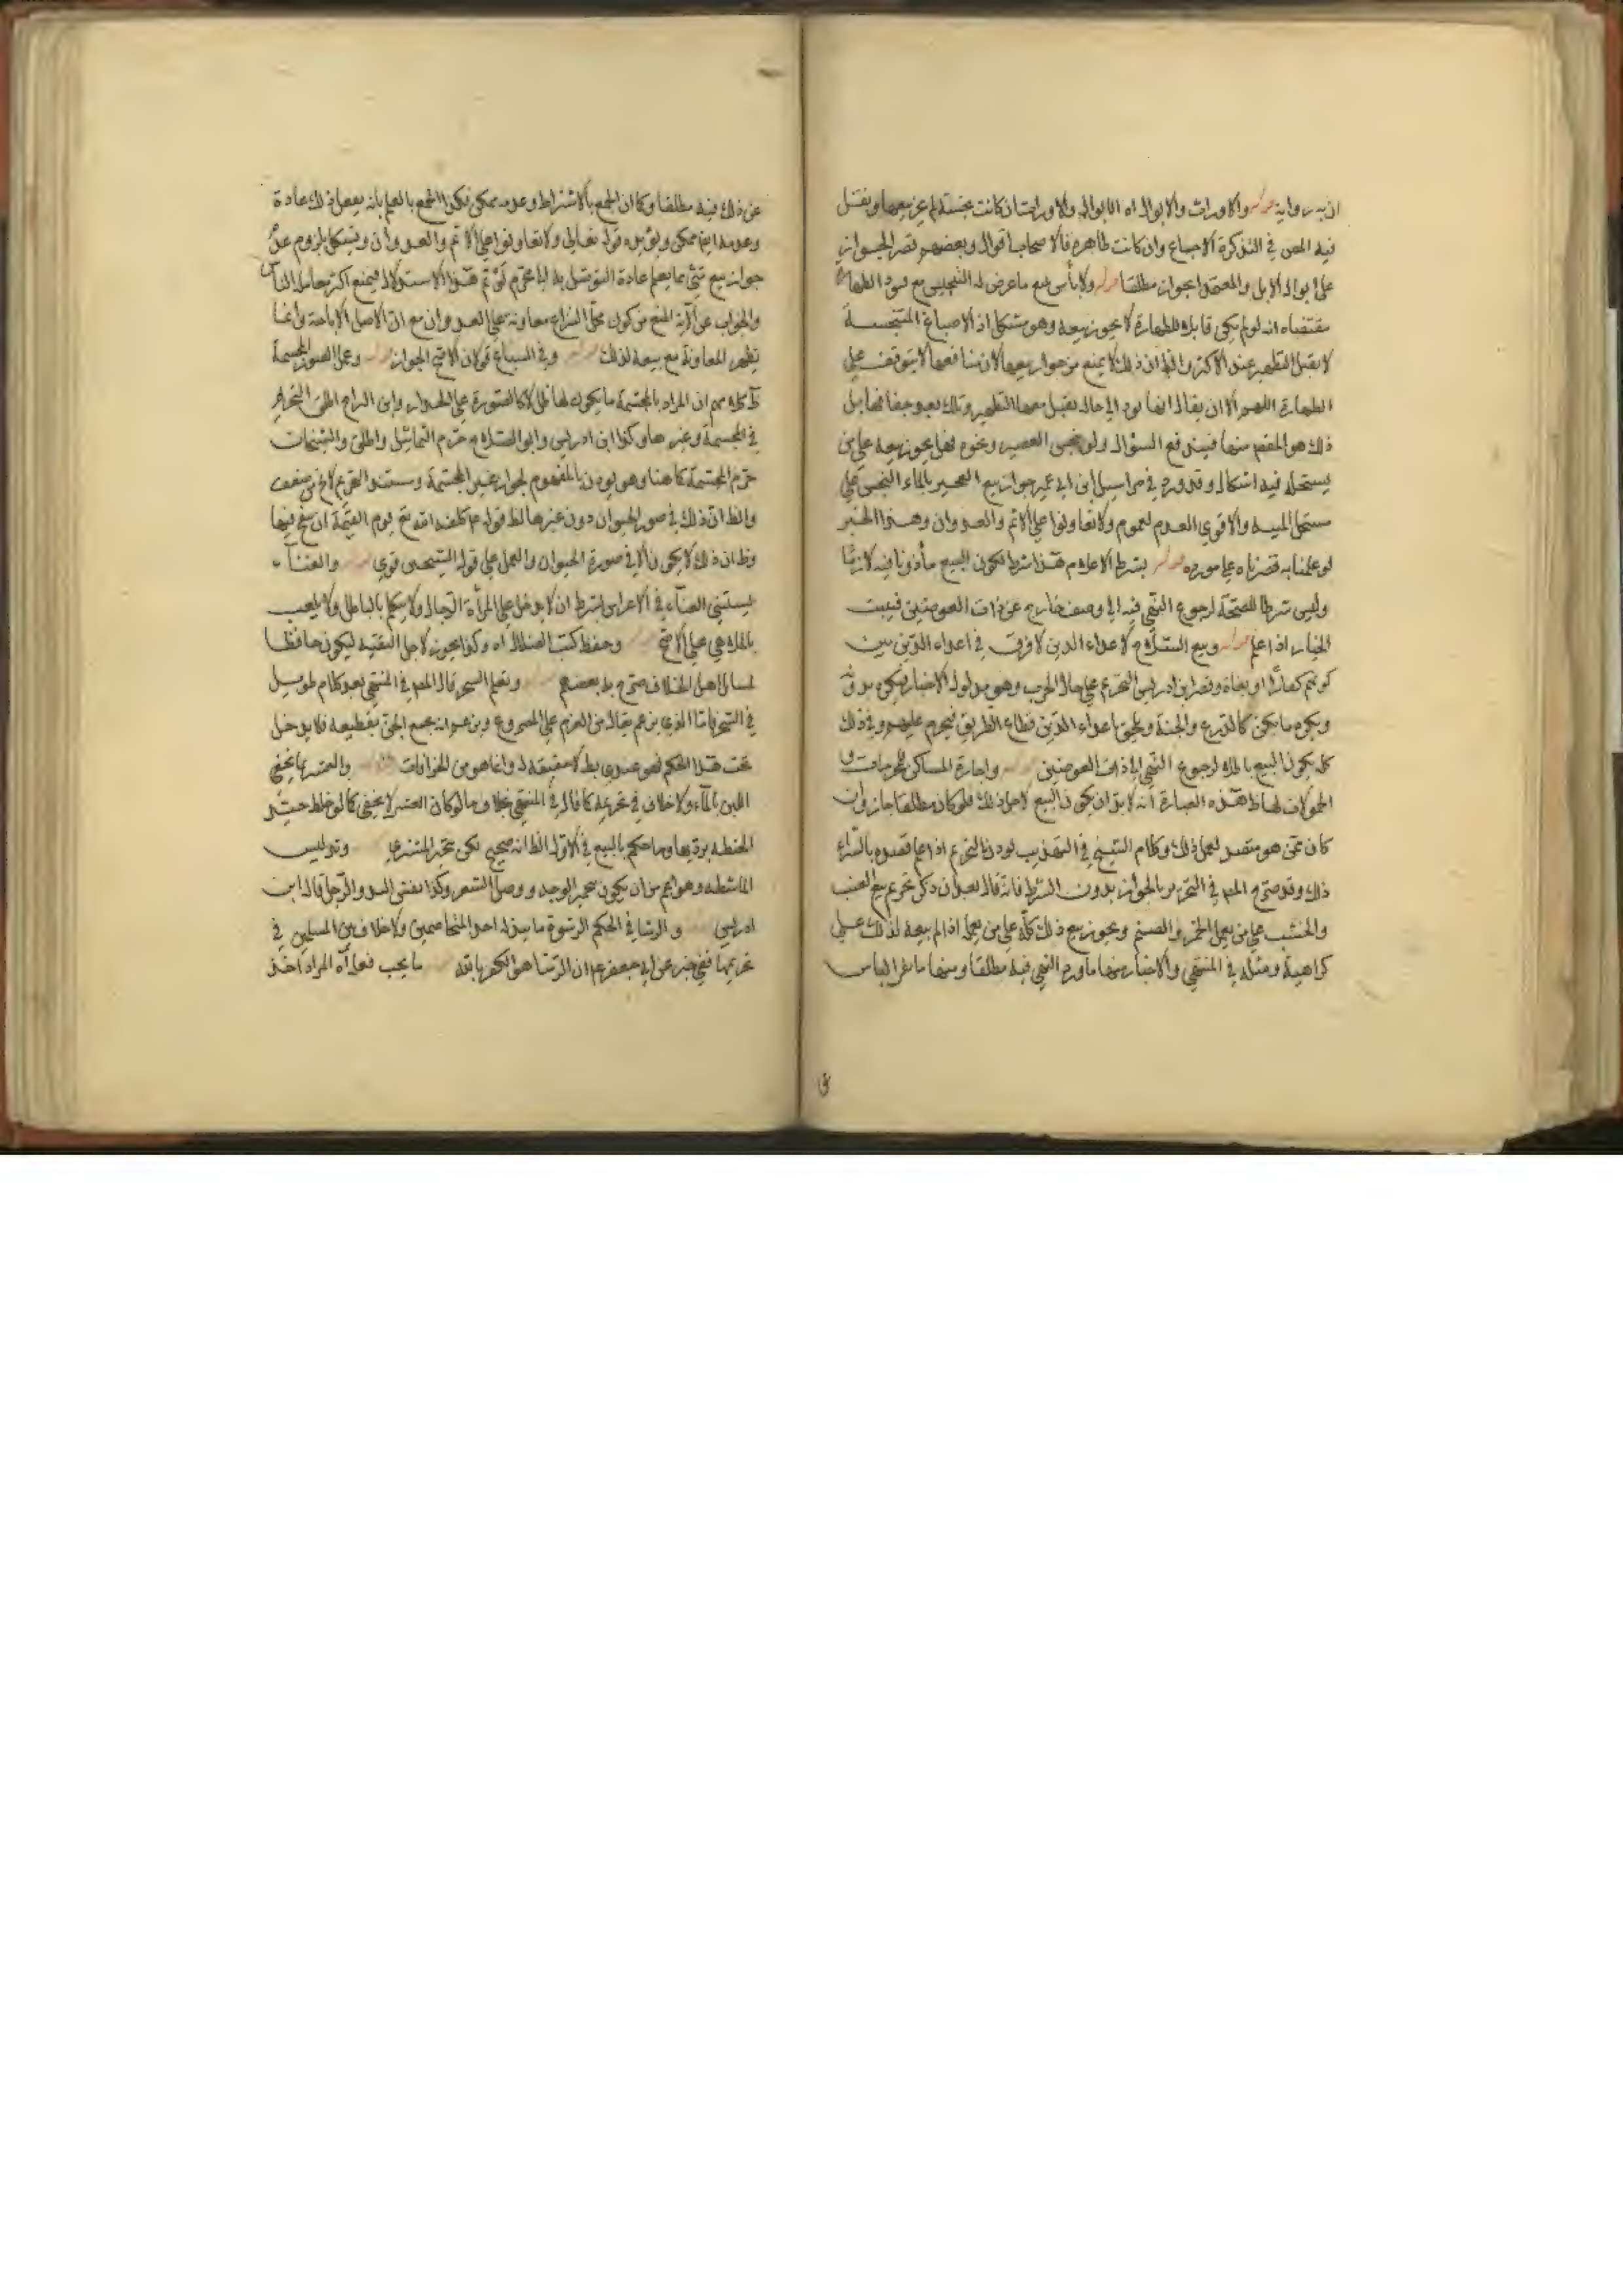 ان به رواية قوله والارواث والابوال اه اما الابوال والارواث ان كانت نجسة لم يجز بيعها ونقل
فيه المص في التذكرة الاجماع وان كانت طاهرة فللاصحاب اقوال وبعضهم قصر الجواز
على ابوال الابل والمعتمد الجواز مطلقا قوله ولا بأس ببيع ما عرض له التنجيس مع قبول الطهارة
مقتضاه انه لو لم يكن قابلا للطهارة لا يجوز بيعه وهو مشكل اذ الاصباغ المتنجسة
لا يقبل التطهير عند الاكثر والظ ان ذلك لا يمنع من جواز بيعها لان منافعها لا يتوقف على
الطهارة اللهم الا ان يقال انها تؤل الى حالة يقبل معها التطهير وذلك بعد جفافها بل
ذلك هو المقصود منها فيندفع السؤال ولو نجس العصير ونحوه فهل يجوز بيعه على من
يستحله فيه اشكال وقد ورد في مراسيل ابن ابي عمير جواز بيع العجين بالماء النجس على
مستحل الميتة والاقوى العدم لعموم ولا تعاونوا على الاثم والعدوان وهذا الخبر
لو عملنا به قصرناه على مورده قوله بشرط الاعلام هذا شرط لكون البيع مأذونا فيه لازما
وليس شرطا للصحة لرجوع النهي فيه الى وصف خارج عن ذات العوضين فيثبت
الخيار اذا علم قوله وبيع السلاح لاعداء الدين لا فرق في اعداء الدين بين
كونهم كفارا او بغاة وقصر ابن ادريس التحريم على حال الحرب وهو مدلول الاخبار
ويكره ما يكن كالدرع والجنة ويلحق باعداء الدين قطاع الطريق فيحرم عليهم وفي ذلك
كله يكون البيع باطلا لرجوع النهي الى ذات العوضين قوله واجارة المساكن للمحرمات و
الحمولات لها ظ هذه العبارة انه لا بد ان يكون البيع لاجل ذلك فلو كان مطلقا جاز وان
كان ممن هو متصد لعمل ذلك وكلام الشيخ في التهذيب يؤذن بالتحريم اذا علم قصده بالشراء
ذلك وقد صرح المص في التحرير بالجواز بدون الشرط فانه قال بعد ان ذكر تحريم بيع العنب
والخشب على من يعمل الخمر والصنم ويجوز بيع ذلك كله على من يعمله اذا لم يبعه لذلك على
كراهية ومثله في المنتهى والاخبار منها ما ورد النهي فيه مطلقا ومنها ما نفى الباس
عن ذلك فيه مطلقا وكما ان الجمع بالاشتراط وعدمه ممكن فكذا الجمع بالعلم بانه يفعل ذلك عادة
وعدمه ايض ممكن ويؤيده قوله تعالى ولا تعاونوا على الاثم والعدوان ويشكل بلزوم عدم
جواز بيع شئ مما يعلم عادة التوصل به الى محرم لو تم هذا الاستدلال فيمنع اكثر معاملة الناس
والجواب عن الآية المنع من كون محل النزاع معاونة على العدوان مع ان الاصل الاباحة وانما
يظهر المعاونة مع بيعه لذلك قوله وفي السباع قولان الاصح الجواز قوله وعمل الصور المجسمة
ظ كلامهم ان المراد بالمجسمة ما يكون لها ظل لا كالصورة على الجدار وابن البراج اطلق التحريم
في المجسمة وغيرها وكذا ابن ادريس وابو الصلاح حرم التماثيل واطلق والشيخان
حرم المجسمة كما هنا وهو يؤذن بالمفهوم لجواز غير المجسمة ومستند التحريم لا يخ من ضعف
والظ ان ذلك في صور الحيوان دون غيرها لظ قوله ع كلفه الله تع يوم القيمة ان ينفخ فيها
وظ ان ذلك لا يكون الا في صورة الحيوان والعمل على قول الشيخين قوي قوله والغناء
يستثنى الغناء في الاعراس بشرط ان لا يدخل على المرأة الرجال ولا يتكلم بالباطل ولا يلعب
بالملاهي على الاصح قوله وحفظ كتب الضلال اه وكذا يجوز لاجل التقية ليكون حافظا
لمسائل اهل الخلاف صرح به بعضهم قوله وتعلم السحر قال المص في المنتهى بعد كلام طويل
في السحر فاما الذي يزعم يقال من العزم على المصروع ويزعم انه يجمع الجن بقطيعه فلا يدخل
تحت هذا الحكم فهو عندي بط لا حقيقة له وانما هو من الخرافات قوله والغش بما يخفى
اللبن بالماء ولا خلاف في تحريمه كما قال في المنتهى بخلاف ما لو كان الغش لا يخفى كما لو خلط جيد
الحنطة برديها وما حكم بالبيع في الاول الظ انه صحيح لكن يتخير المشتري قوله وتدليس
الماشطة وهو اعم من ان يكون تحمير الوجه ووصل الشعر وكذا نقش اليد والرجل قاله ابن
ادريس قوله والرشا في الحكم الرشوة ما يبذله احد المتخاصمين ولا خلاف بين المسلمين في
تحريمها ففي خبر عن ابي جعفر ع ان الرشا هو الكفر بالله قوله ما يجب فعله اه المراد اخذ